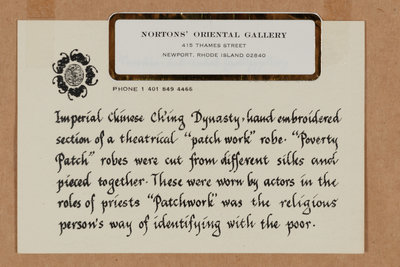 NORTONS' ORIENTAL GALLERY
415 THAMES STREET
NEWPORT, RHODE ISLAND 02840
PHONE 1 401 849 4468
Imperial Chinese Ch'ing Dynasty, hand embroidered
section of a theatrical "patch work" robe. "Poverty
Patch" robes were cut from different silks and
pieced together. These were worn by actors in the
roles of priests "Patchwork" was the religious
person's way of identifying with the poor.